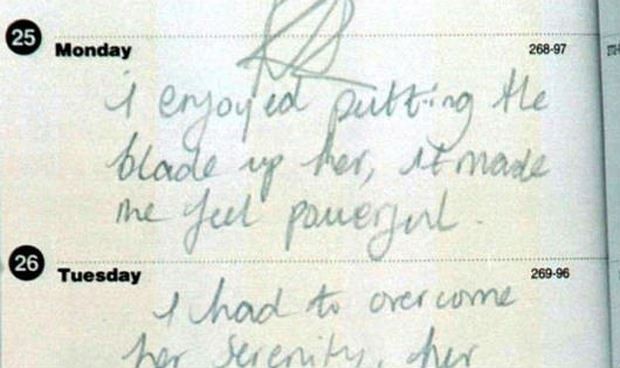 25 Monday 268-97
I enjoyed putting the
blade up her, it made
me feel powerful.
26 Tuesday 269-96
I had to overcome
her serenity, her